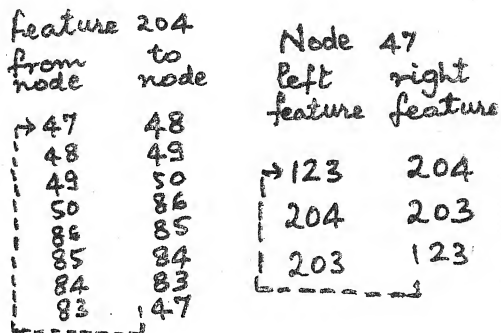 Feature 204
from to
node node
47 48
48 49
49 50
50 86
86 85
85 84
84 83
83 47
Node 47
left right
feature feature
123 204
204 203
203 123